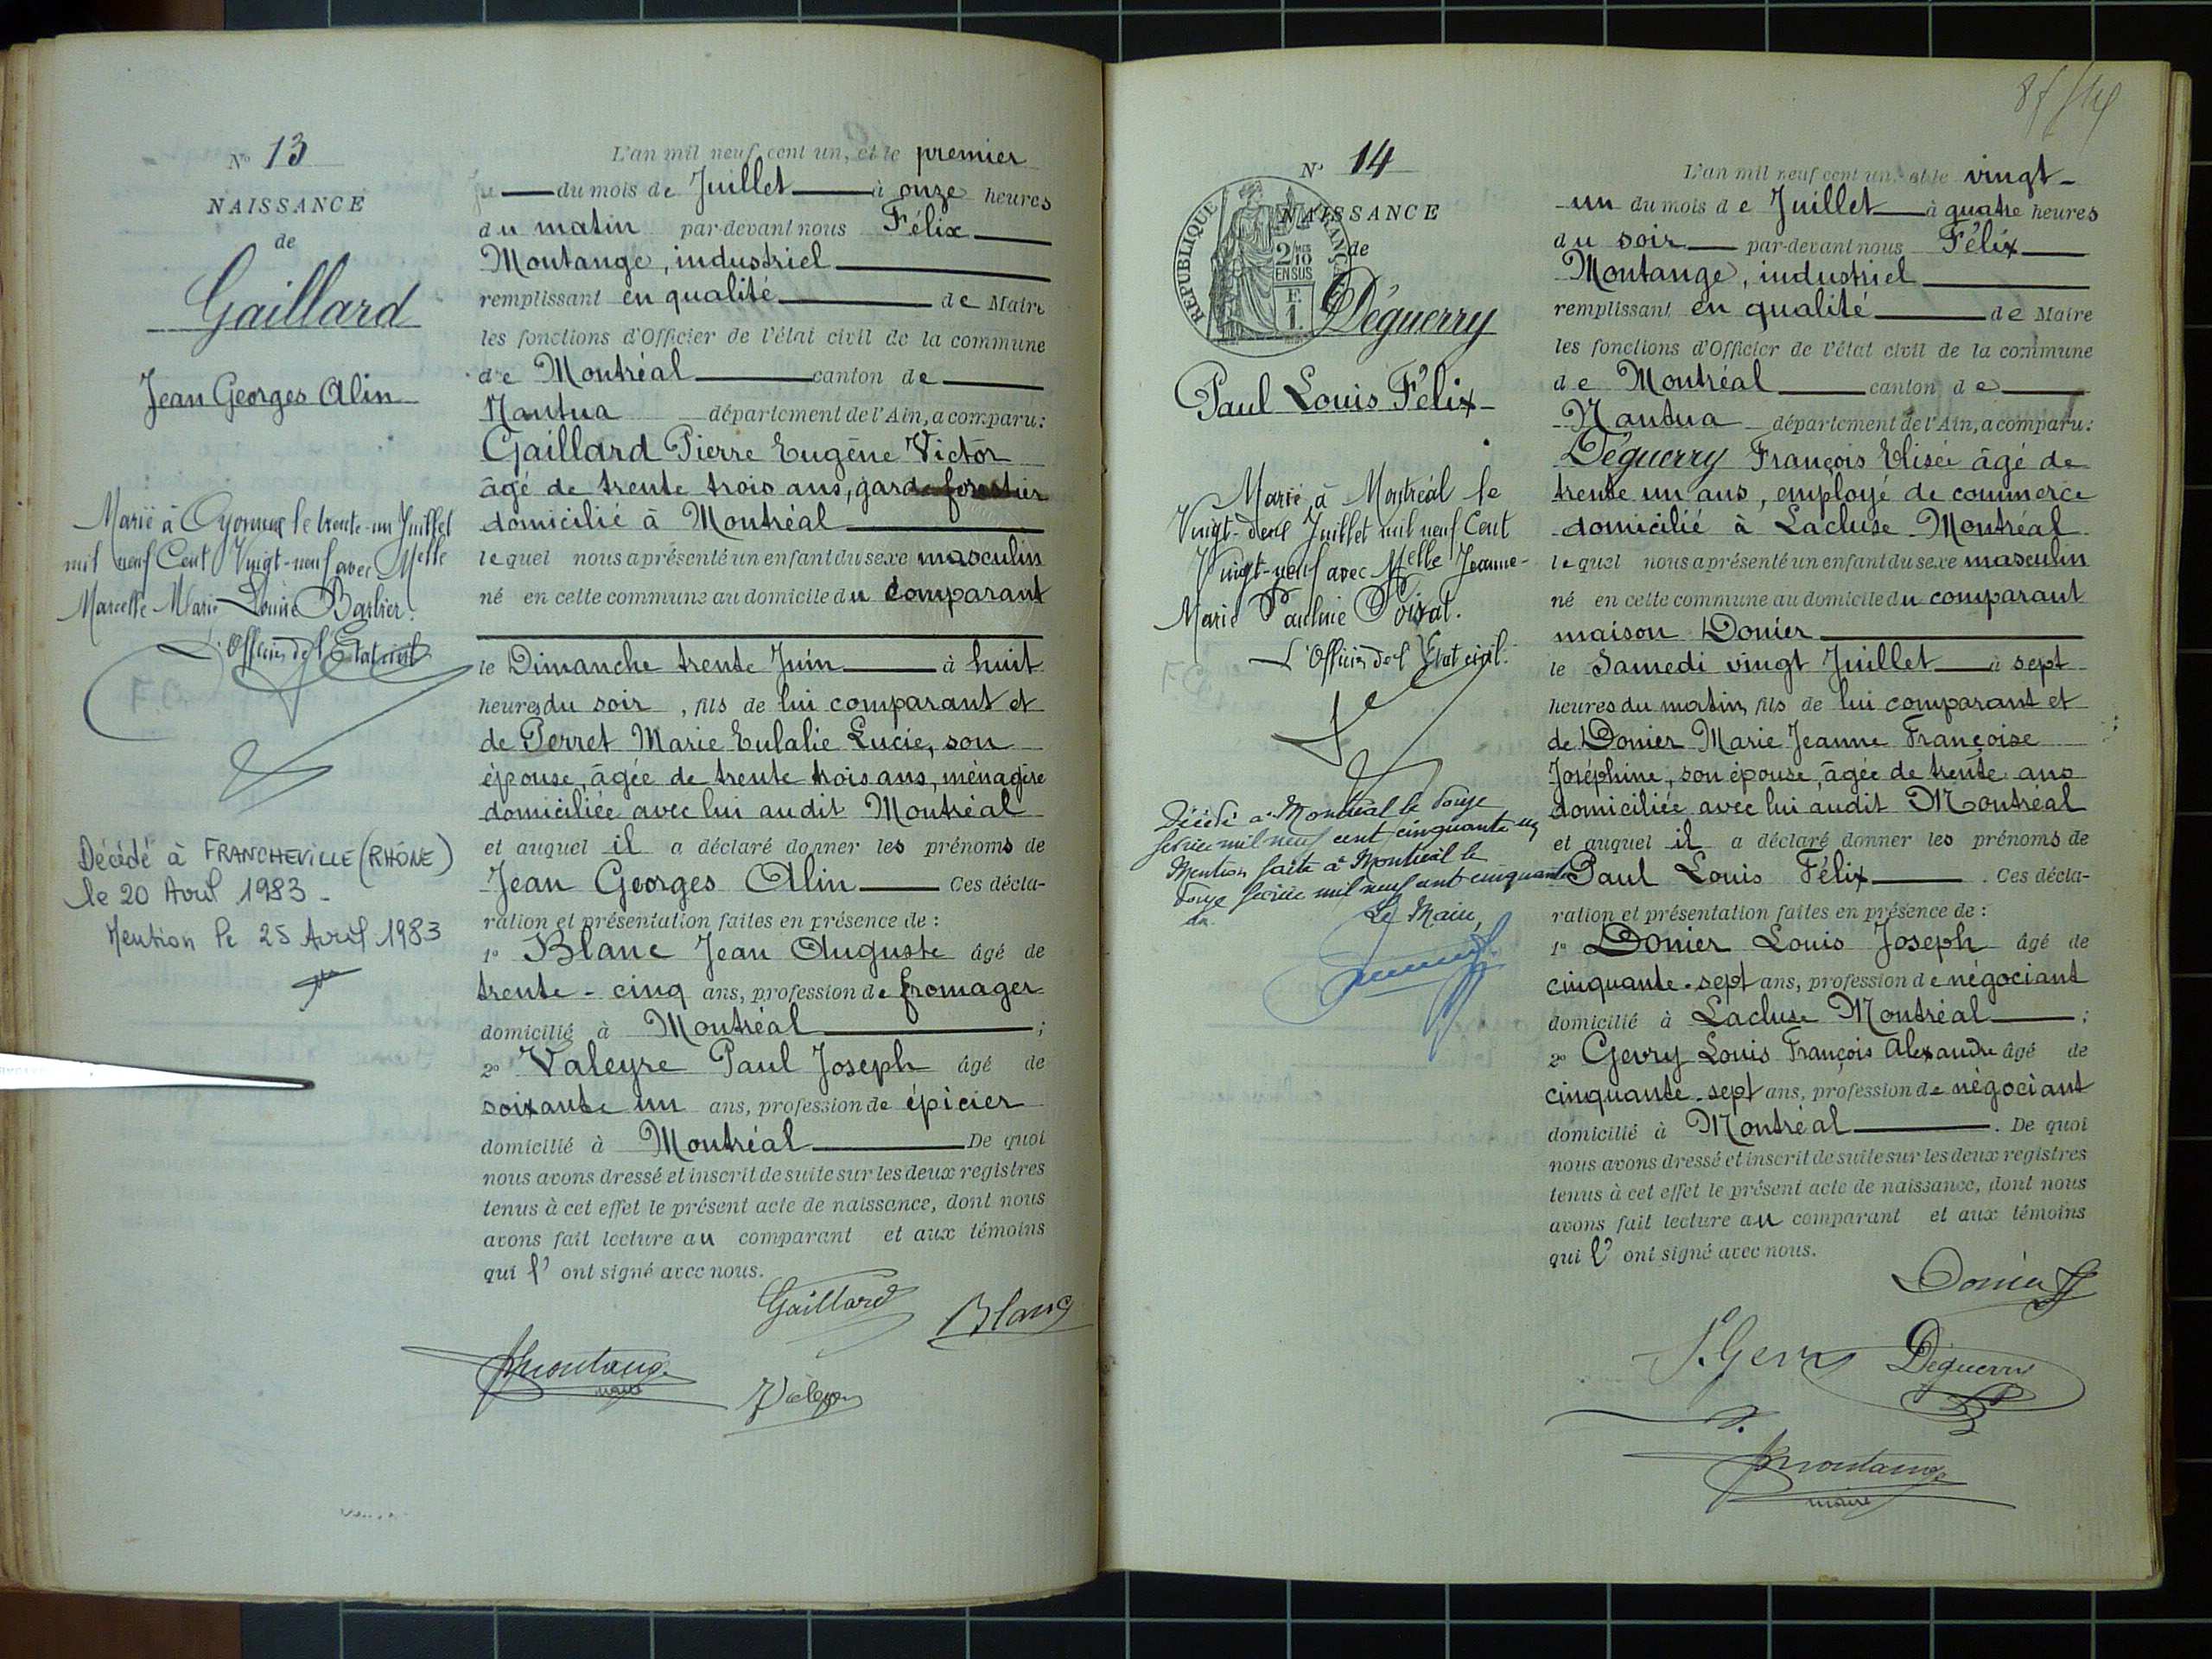 N° 13
NAISSANCE
de
Gaillard
Jean Georges Alin
Marié à Oyonnax le trente-un Juillet
mil neuf Cent Vingt-neuf avec Melle
Marcelle Marie Louise Barbier.
L'Officier de l'Etat civil
Décédé à FRANCHEVILLE (RHÔNE)
le 20 Avril 1983 -
Mention le 25 Avril 1983
L'an mil neuf cent un, et le premier
du mois de Juillet à onze heures
du matin par-devant nous Félix
Montange, industriel
remplissant en qualité de Maire
les fonctions d'Officier de l'état civil de la commune
de Montréal canton de
Nantua département de l'Ain, a comparu:
Gaillard Pierre Eugène Victor
âgé de trente trois ans, garde forestier
domicilié à Montréal
lequel nous a présenté un enfant du sexe masculin
né en cette commune au domicile du comparant
le Dimanche trente Juin à huit
heures du soir, fils de lui comparant et
de Perret Marie Eulalie Lucie, son
épouse, âgée de trente trois ans, ménagère
domiciliée avec lui audit Montréal
et auquel il a déclaré donner les prénoms de
Jean Georges Alin Ces décla-
ration et présentation faites en présence de :
1° Blanc Jean Auguste âgé de
trente-cinq ans, profession de fromager
domicilié à Montréal ;
2° Valeyre Paul Joseph âgé de
soixante un ans, profession de épicier
domicilié à Montréal De quoi
nous avons dressé et inscrit de suite sur les deux registres
tenus à cet effet le présent acte de naissance, dont nous
avons fait lecture au comparant et aux témoins
qui l' ont signé avec nous.
Gaillard Blanc
Montange
maire
Valeyre
N° 14
NAISSANCE
de
REPUBLIQUE FRANÇAISE
2/10
EN SUS
F.
1.
Déguerry
Paul Louis Félix
Marié à Montréal le
Vingt-deux Juillet mil neuf Cent
Vingt-neuf avec Melle Jeanne-
Marie Pauline Poizat.
L'Officier de l'Etat civil.
Décédé à Montréal le douze
février mil neuf cent cinquante un
Mention faite à Montréal le
douze février mil neuf cent cinquante
un.
Le Maire,
L'an mil neuf cent un, et le vingt-
un du mois de Juillet à quatre heures
du soir par-devant nous Félix
Montange, industriel
remplissant en qualité de Maire
les fonctions d'Officier de l'état civil de la commune
de Montréal canton de
Nantua département de l'Ain, a comparu:
Déguerry François Elisée âgé de
trente un ans, employé de commerce
domicilié à Lacluse-Montréal
lequel nous a présenté un enfant du sexe masculin
né en cette commune au domicile du comparant
maison Donier
le Samedi vingt Juillet à sept
heures du matin, fils de lui comparant et
de Donier Marie Jeanne Françoise
Joséphine, son épouse, âgée de trente ans
domiciliée avec lui audit Montréal
et auquel il a déclaré donner les prénoms de
Paul Louis Félix . Ces décla-
ration et présentation faites en présence de :
1° Donier Louis Joseph âgé de
cinquante-sept ans, profession de négociant
domicilié à Lacluse Montréal ;
2° Gevry Louis François Alexandre âgé de
cinquante-sept ans, profession de négociant
domicilié à Montréal . De quoi
nous avons dressé et inscrit de suite sur les deux registres
tenus à cet effet le présent acte de naissance, dont nous
avons fait lecture au comparant et aux témoins
qui l' ont signé avec nous.
Donier
Gevry Déguerry
Montange
maire